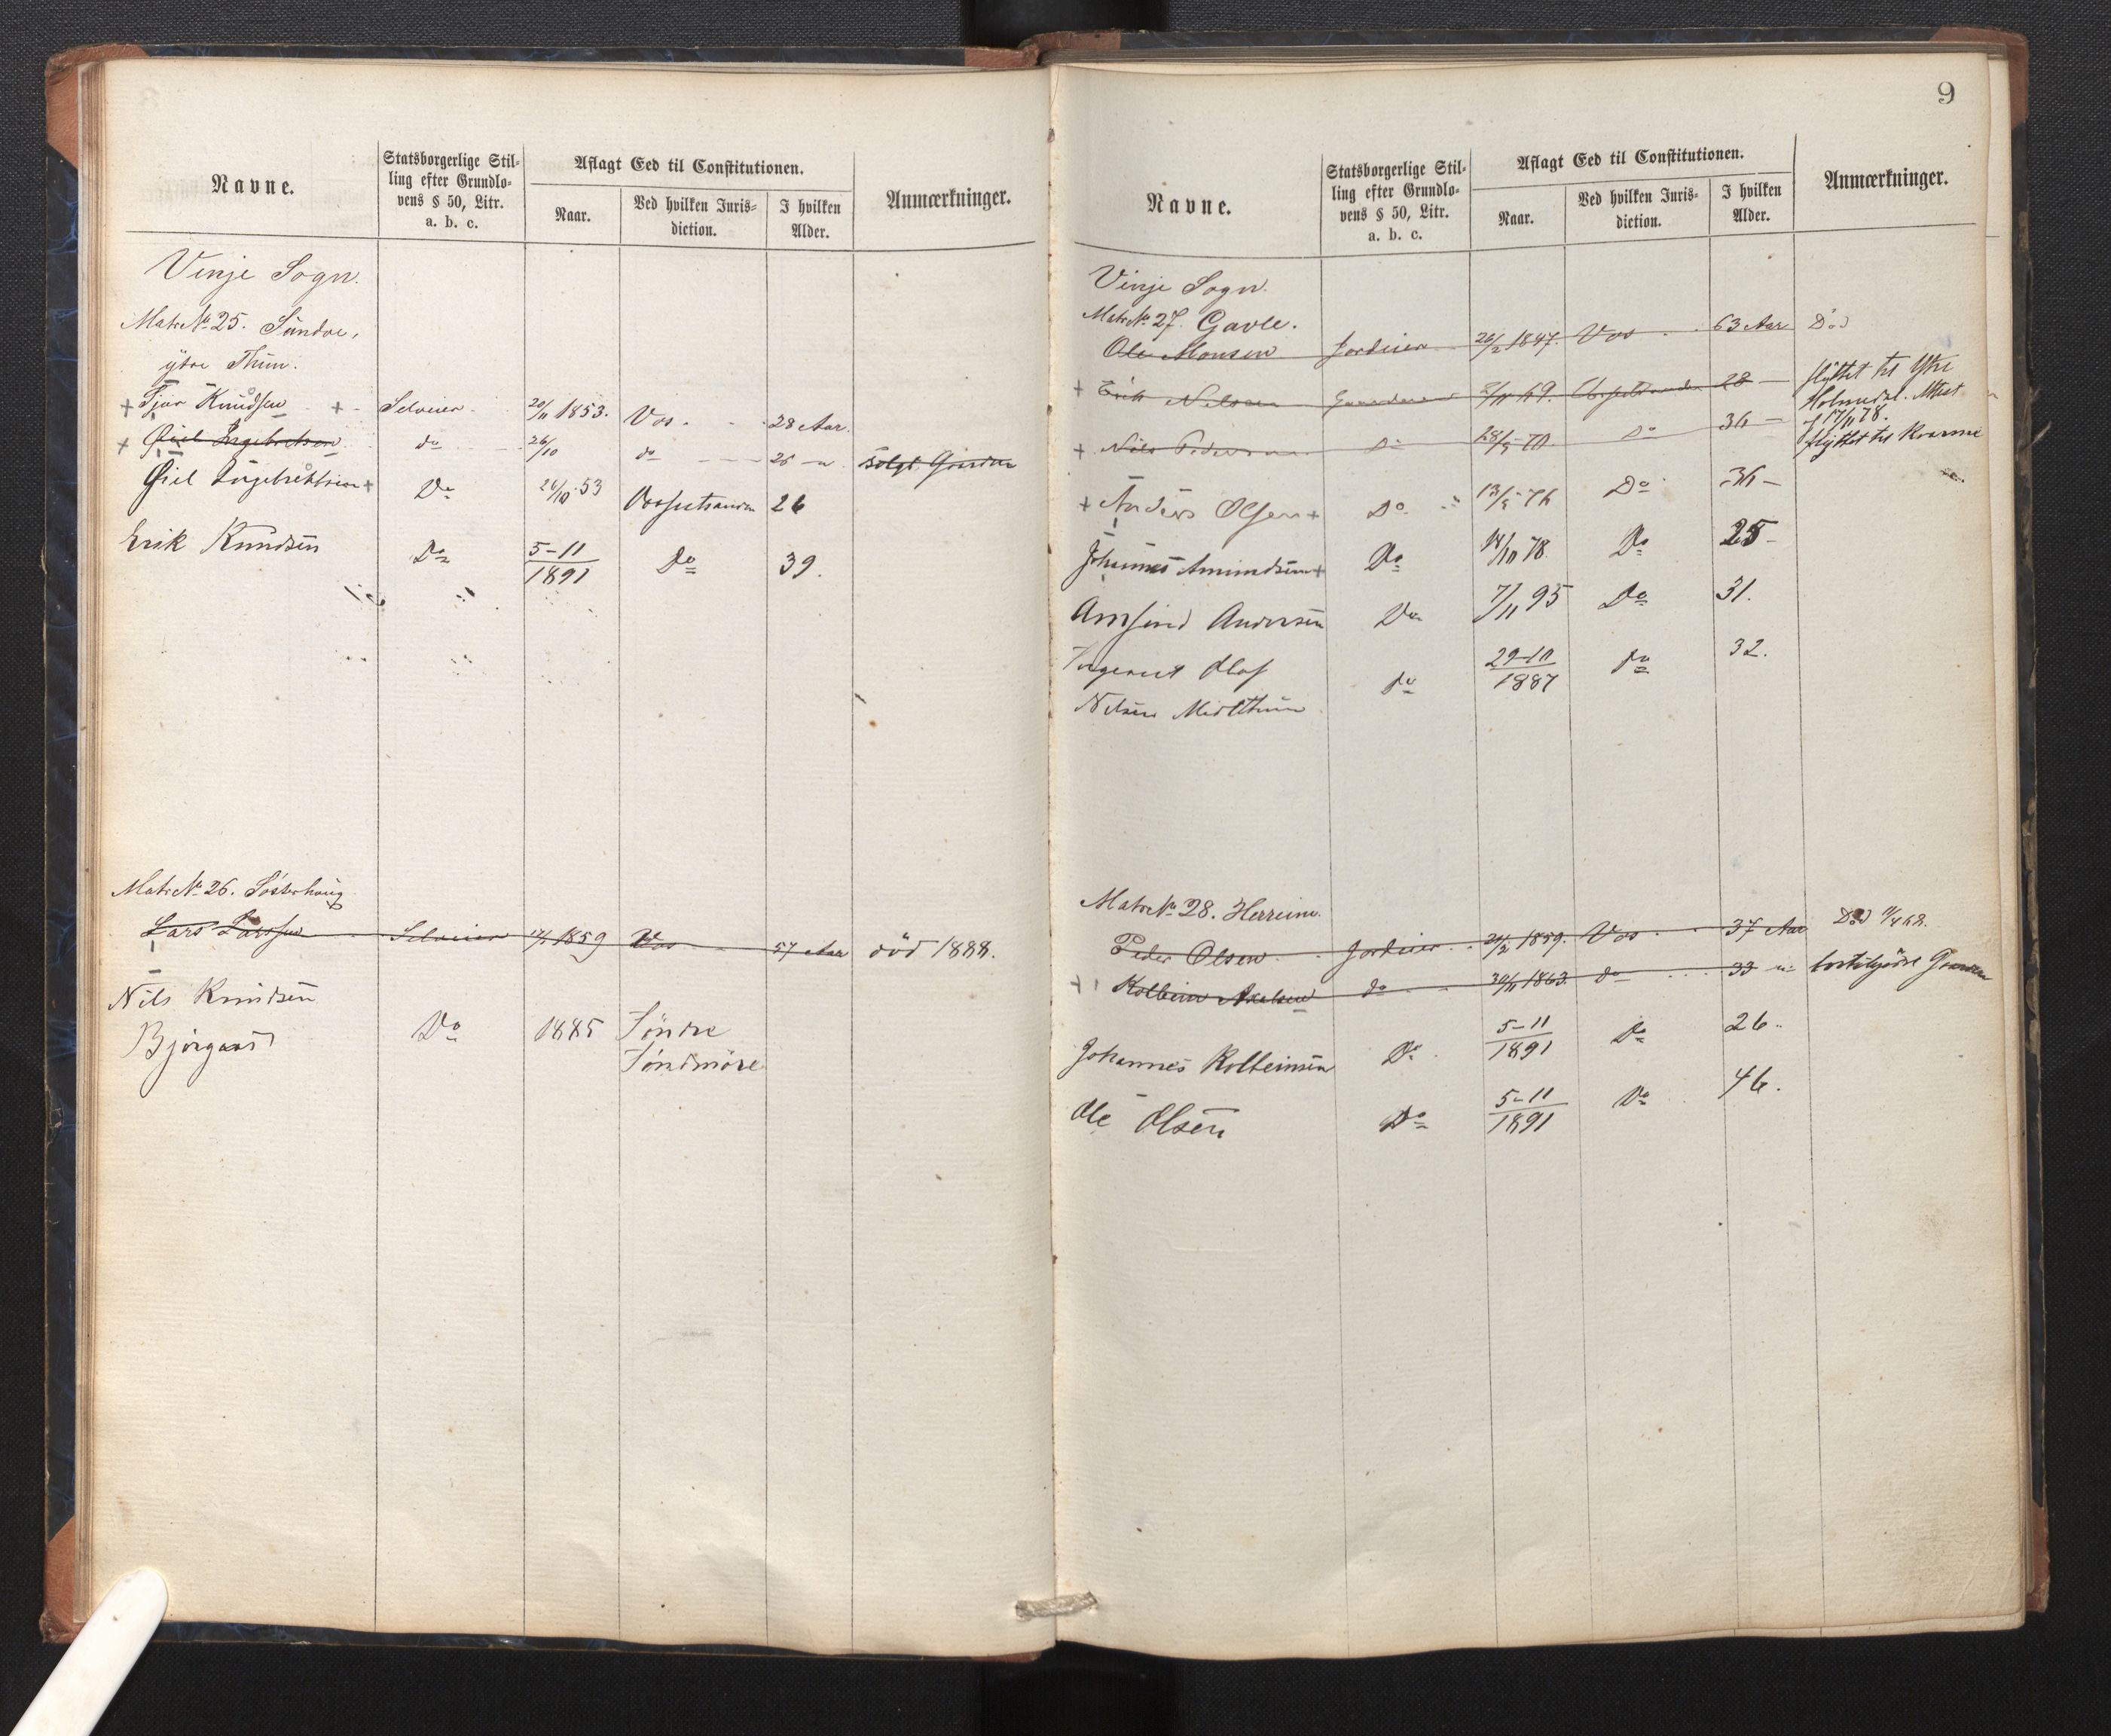 Navne.
Statsborgerlige Stil-
ling efter Grundlo-
vens § 50, Litr.
a. b. c.
Aflagt Eed til Constitutionen.
Naar.
Ved hvilken Juris-
diction.
I hvilken
Alder.
Anmærkninger.
Vinje Sogn.
Matr. No. 25. Sundve,
ytre Thun.
+ Knudsen + Seleier 20/11 1853. Vos. 28 Aar.
+ Engebretsen do 26/10 do 26 - Solgt Gaarden
Do 26/10 53 26
Erik Knudsen Do 5-11/1891 Do 39.
Matr. No. 26.
Lars Larssen Seleier 1859 Vos 57 Aar död 1888.
Nils Knudsen
Bjørgaas Do 1885 Söndre
Söndmöre
9
Navne.
Statsborgerlige Stil-
ling efter Grundlo-
vens § 50, Litr.
a. b. c.
Aflagt Eed til Constitutionen.
Naar.
Ved hvilken Juris-
diction.
I hvilken
Alder.
Anmærkninger.
Vinje Sogn.
Matr. No. 27. Gavle.
Ole Monsen Jordeier 26/2 1847. Vos 63 Aar Död
+ Erik Nilsen 69. 28 - flyttet til Ytre
Holmedal. Attest
af 17/11 78.
+ Nils Pedersen Do 70. Do 36 - flyttet til Kvamme
+ Anders Olsen + Do 76 Do 36 -
Johannes Amundsen + Do 14/10 78. Do 25 -
Arnfind Andersen Do 7/11 95 Do 31.
Ingerut Olaf
Nilsen Midtthun do 29-10/1887 do 32.
Matr. No. 28. Herreim.
Peder Olsen Jordeier 26/2 1859. Vos 37 Aar Död
+ Kolbein Axelsen do 30/11 1863. do 33 - Gaarden
Johannes Kolbeinsen Do 5-11/1891 Do 26.
Ole Olsen Do 5-11/1891 Do 46.